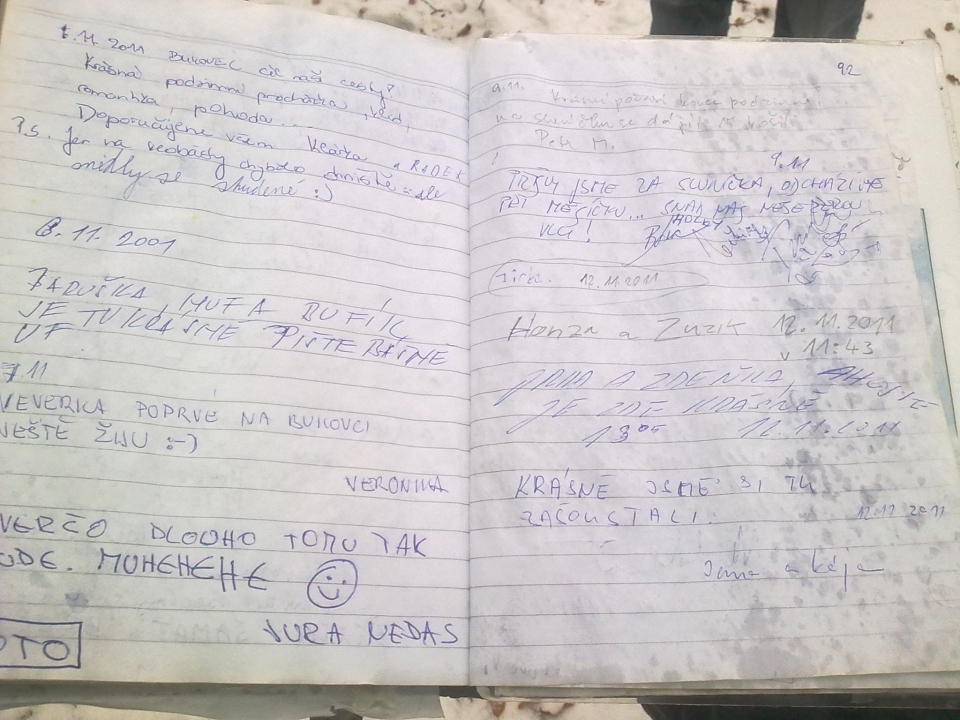 1.11.2011 BUKOVEC CÍL NAŠÍ CESTY?
Krásná podzimní procházka, klid,
romantika, pohoda...
Doporučujeme všem Klárka a RADEK
P.S. Jen na
směly se studené :)
8.11.2001
BARUŠKA, MUF A BUFÍK
JE TU KRÁSNĚ PIŠTE BÁSNĚ
UF
7 11
VEVERKA POPRVÉ NA BUKOVCI
JEŠTĚ ŽIJU :-)
VERONIKA
VERČO DLOUHO TOMU TAK
UDE. MUHEHEHE
JURA NEDAS
OTO
92
9.11.
Krásné počasí
na sluníčku se dá
Petr M.
9.11
PŘIŠLI JSME ZA SLUNÍČKA, ODCHÁZÍME
PŘI MĚSÍČKU... SNAD NÁS NESEŽEROU
VLCI!
Jirka. 12.11.2011
Honza a Zuzik 12.11.2011
v 11:43
JANA A ZDEŇKA, AHOJTE
JE ZDE KRÁSNĚ
13 05 12.11.2011
KRÁSNĚ JSME SI TU
ZAŠOUSTALI. 12.11 2011
Jana a Kája